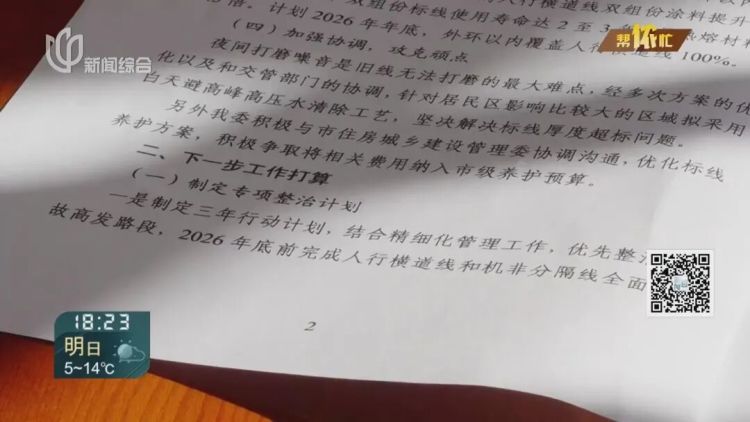 新闻综合
帮忙
双组份标线使用寿命达2至3
人行横道线双组份涂料提升
计划2026年年底，外环以内覆盖人行横道线100%。
（四）加强协调，攻克顽点
夜间打磨噪音是旧线无法打磨的最大难点，经多次方案的优
化以及和交管部门的协调，针对居民区影响比较大的区域拟采用
白天避高峰高压水清除工艺，坚决解决标线厚度超标问题。
另外我委积极与市住房城乡建设管理委协调沟通，优化标线
养护方案，积极争取将相关费用纳入市级养护预算。
二、下一步工作打算
（一）制定专项整治计划
一是制定三年行动计划，结合精细化管理工作，优先整
故高发路段，2026年底前完成人行横道线和机非分隔线全面
2
18:23
明日
5~14℃